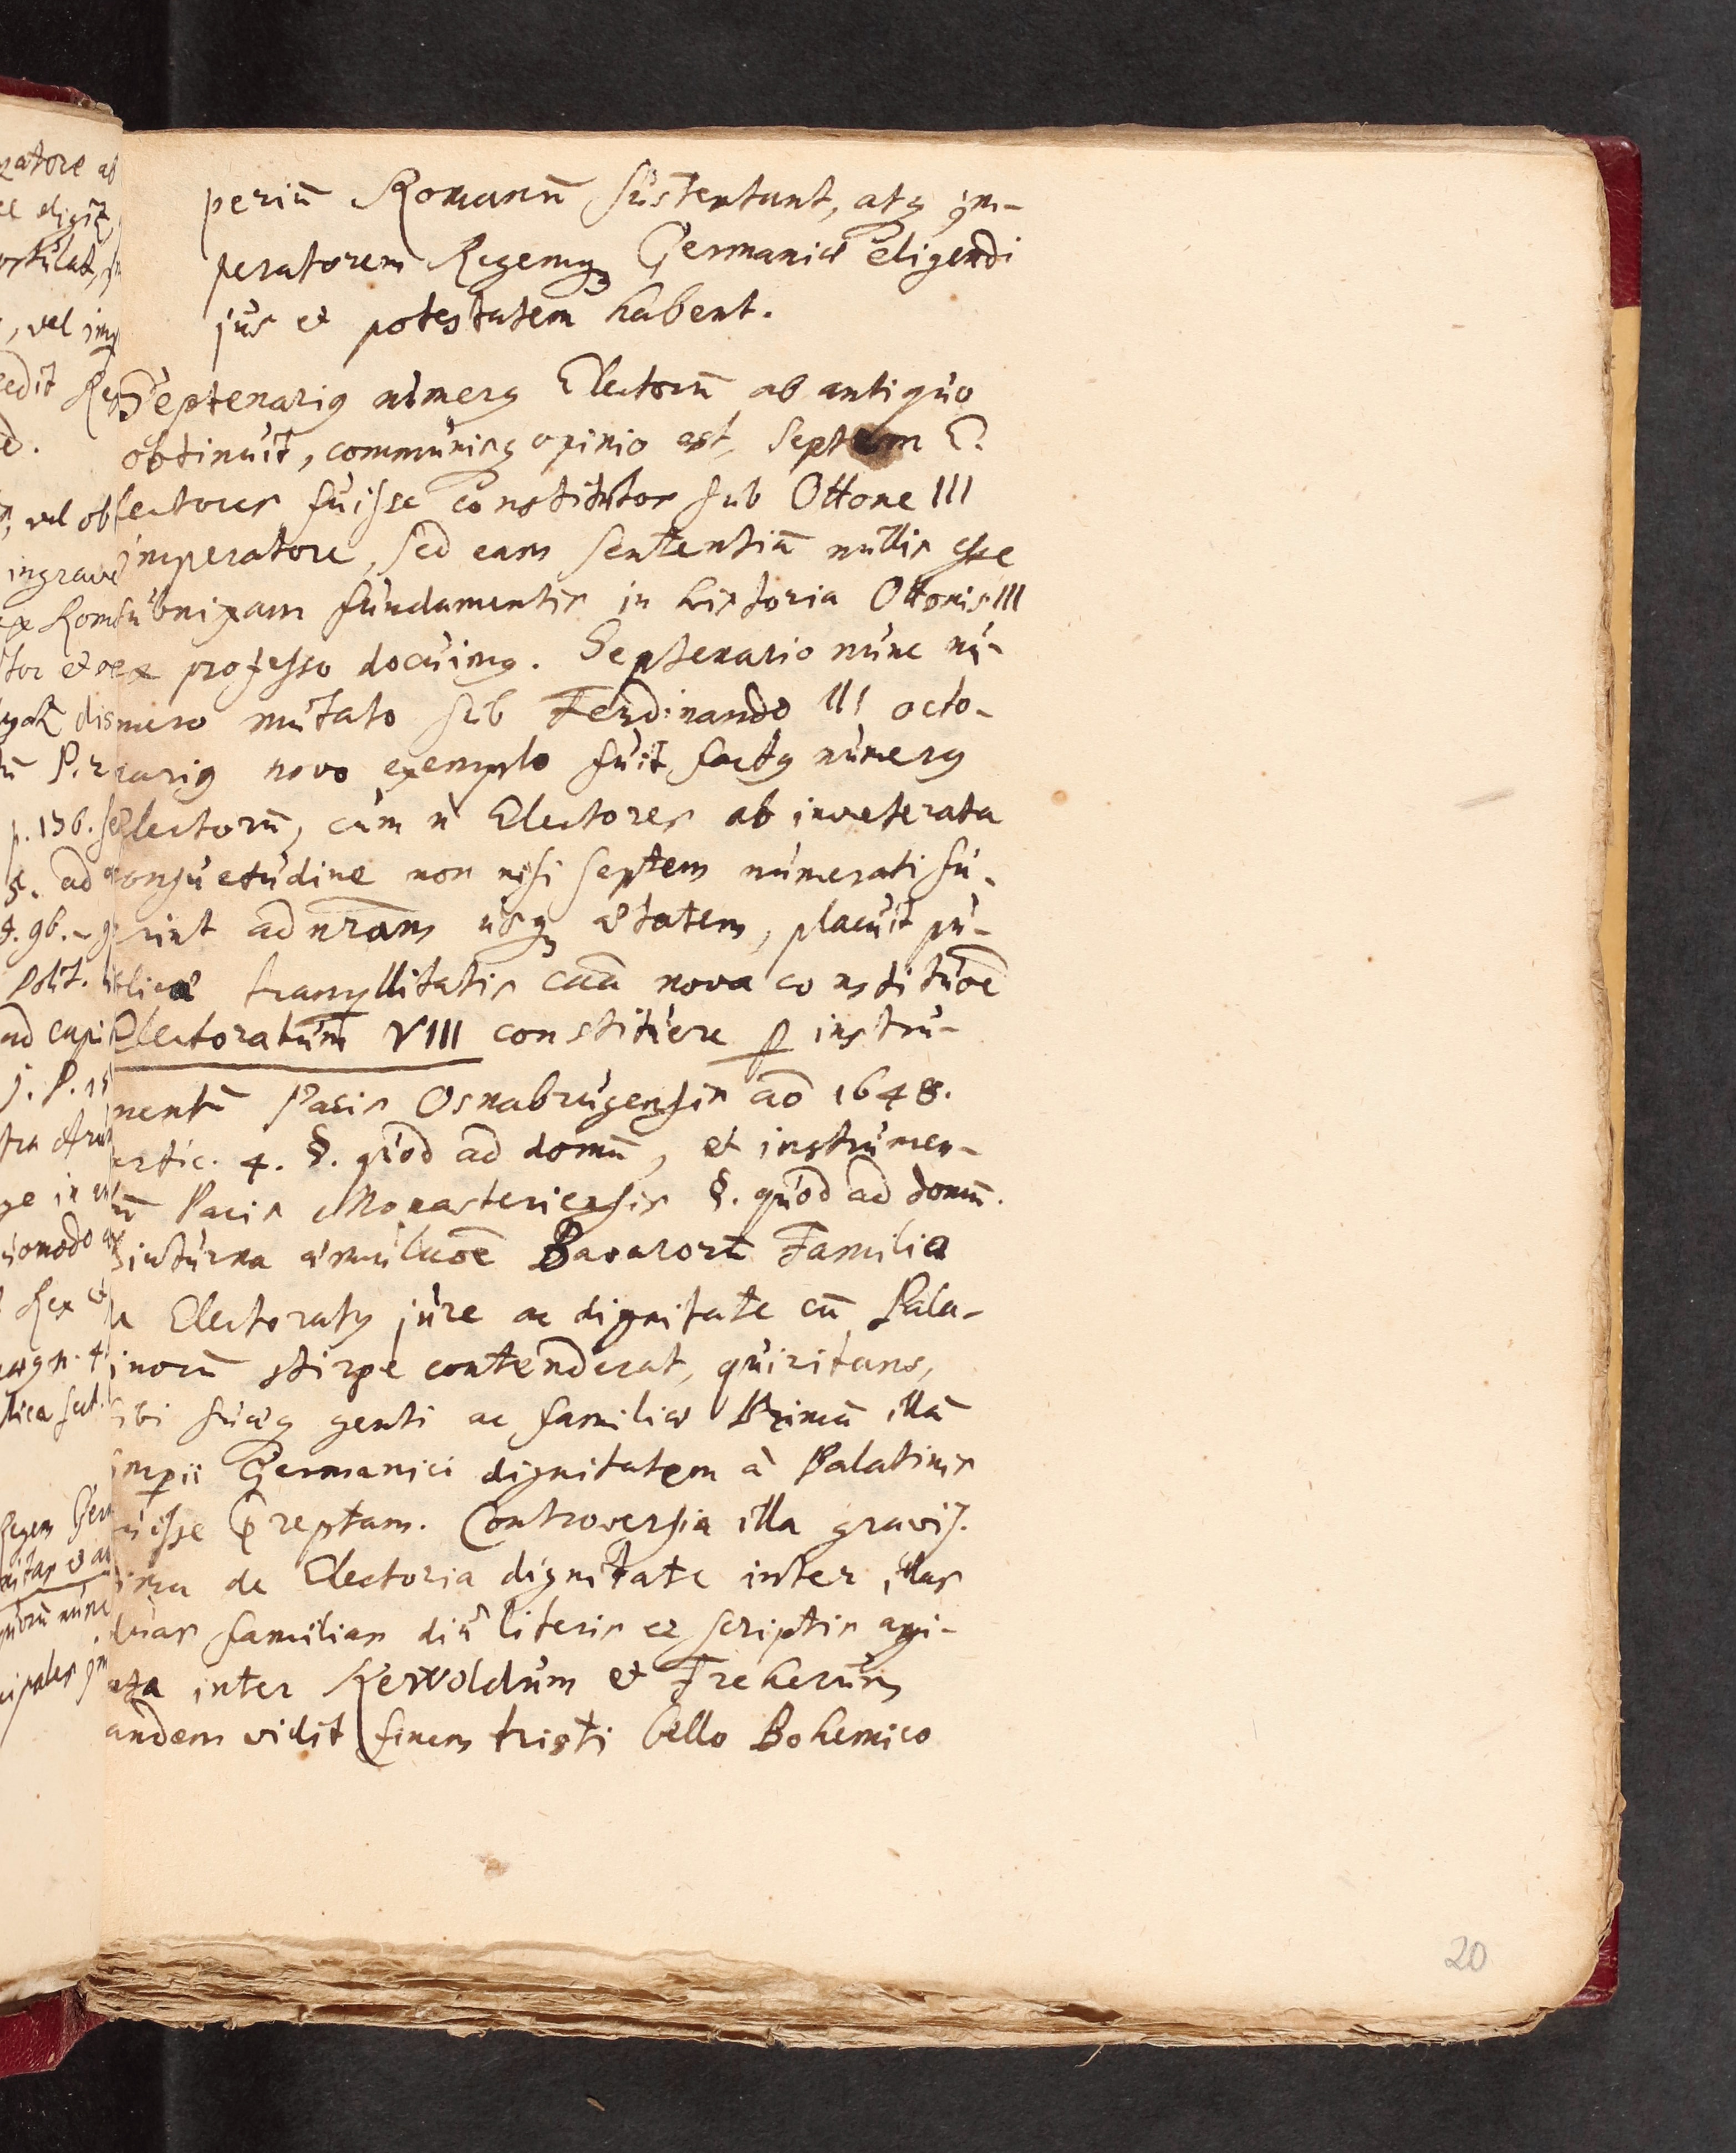 periū Romanū sustentant, atq̨ im-
peratorem Regemq̨ Germaniæ eligendi
jus et potestatem habent.
Septenarig numerg Electorū ab antiquo
obtinuit, communisq̨ opinio est, septem E-
lectores fuisse constitutos sub Ottone III
imperatore, sed eam sententiā nullis esse
subnixam fundamentis in historia Ottonis III
ex professo docuimg. Septenario nunc nu-
mero mutato sub Ferdinando III octo-
narig novo exemplo fuit factg numerg
Electorū, cum n̄ Electores ab inveterata
consuetudine non nisi septem numerati fu-
rint ad nr̄am usq̨ ætatem, placuit pu-
blicæ tranqllitatis caā nova constituōe
Electoratum VIII constituere ꝑ instru-
mentū Pacis Osnabrugensis aō 1648.
artic. 4. §. quod ad domū, et instrumen-
tū Pacis Monasteriensis §. quod ad domū.
Diuturna æmulaōe Bavarorū Familia
de Electoratg jure ac dignitate cū Pala-
tinorū stirpe contenderat, quiritans,
sibi suæq̨ genti ac familiæ Primā illā
Imꝑii Germanici dignitatem à Palatinis
fuisse præreptam. Controversia illa gravis-
sima de Electoria dignitate inter illas
duas familias diu literis et scriptis agi-
tata inter Gewoldum et Freherum
tandem vidit finem tristi bello Bohemico
20